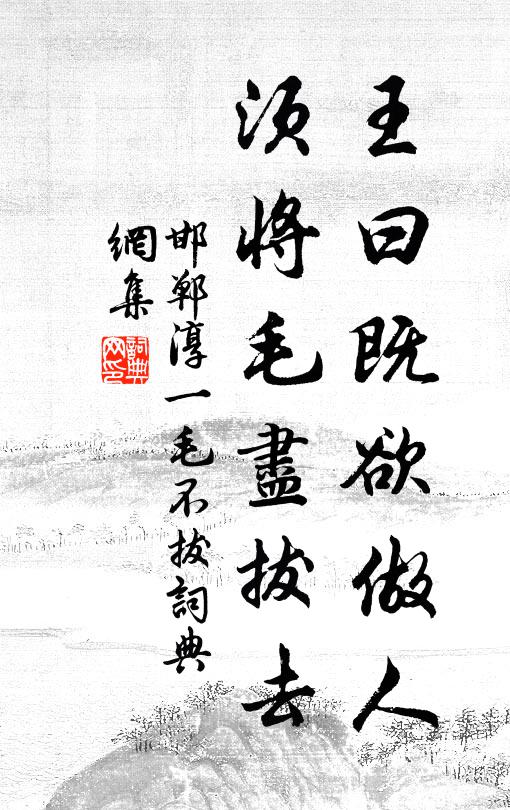 王曰既欲做人
須將毛盡拔去
邯鄲淳一毛不拔詞典
網集
詞典
网印